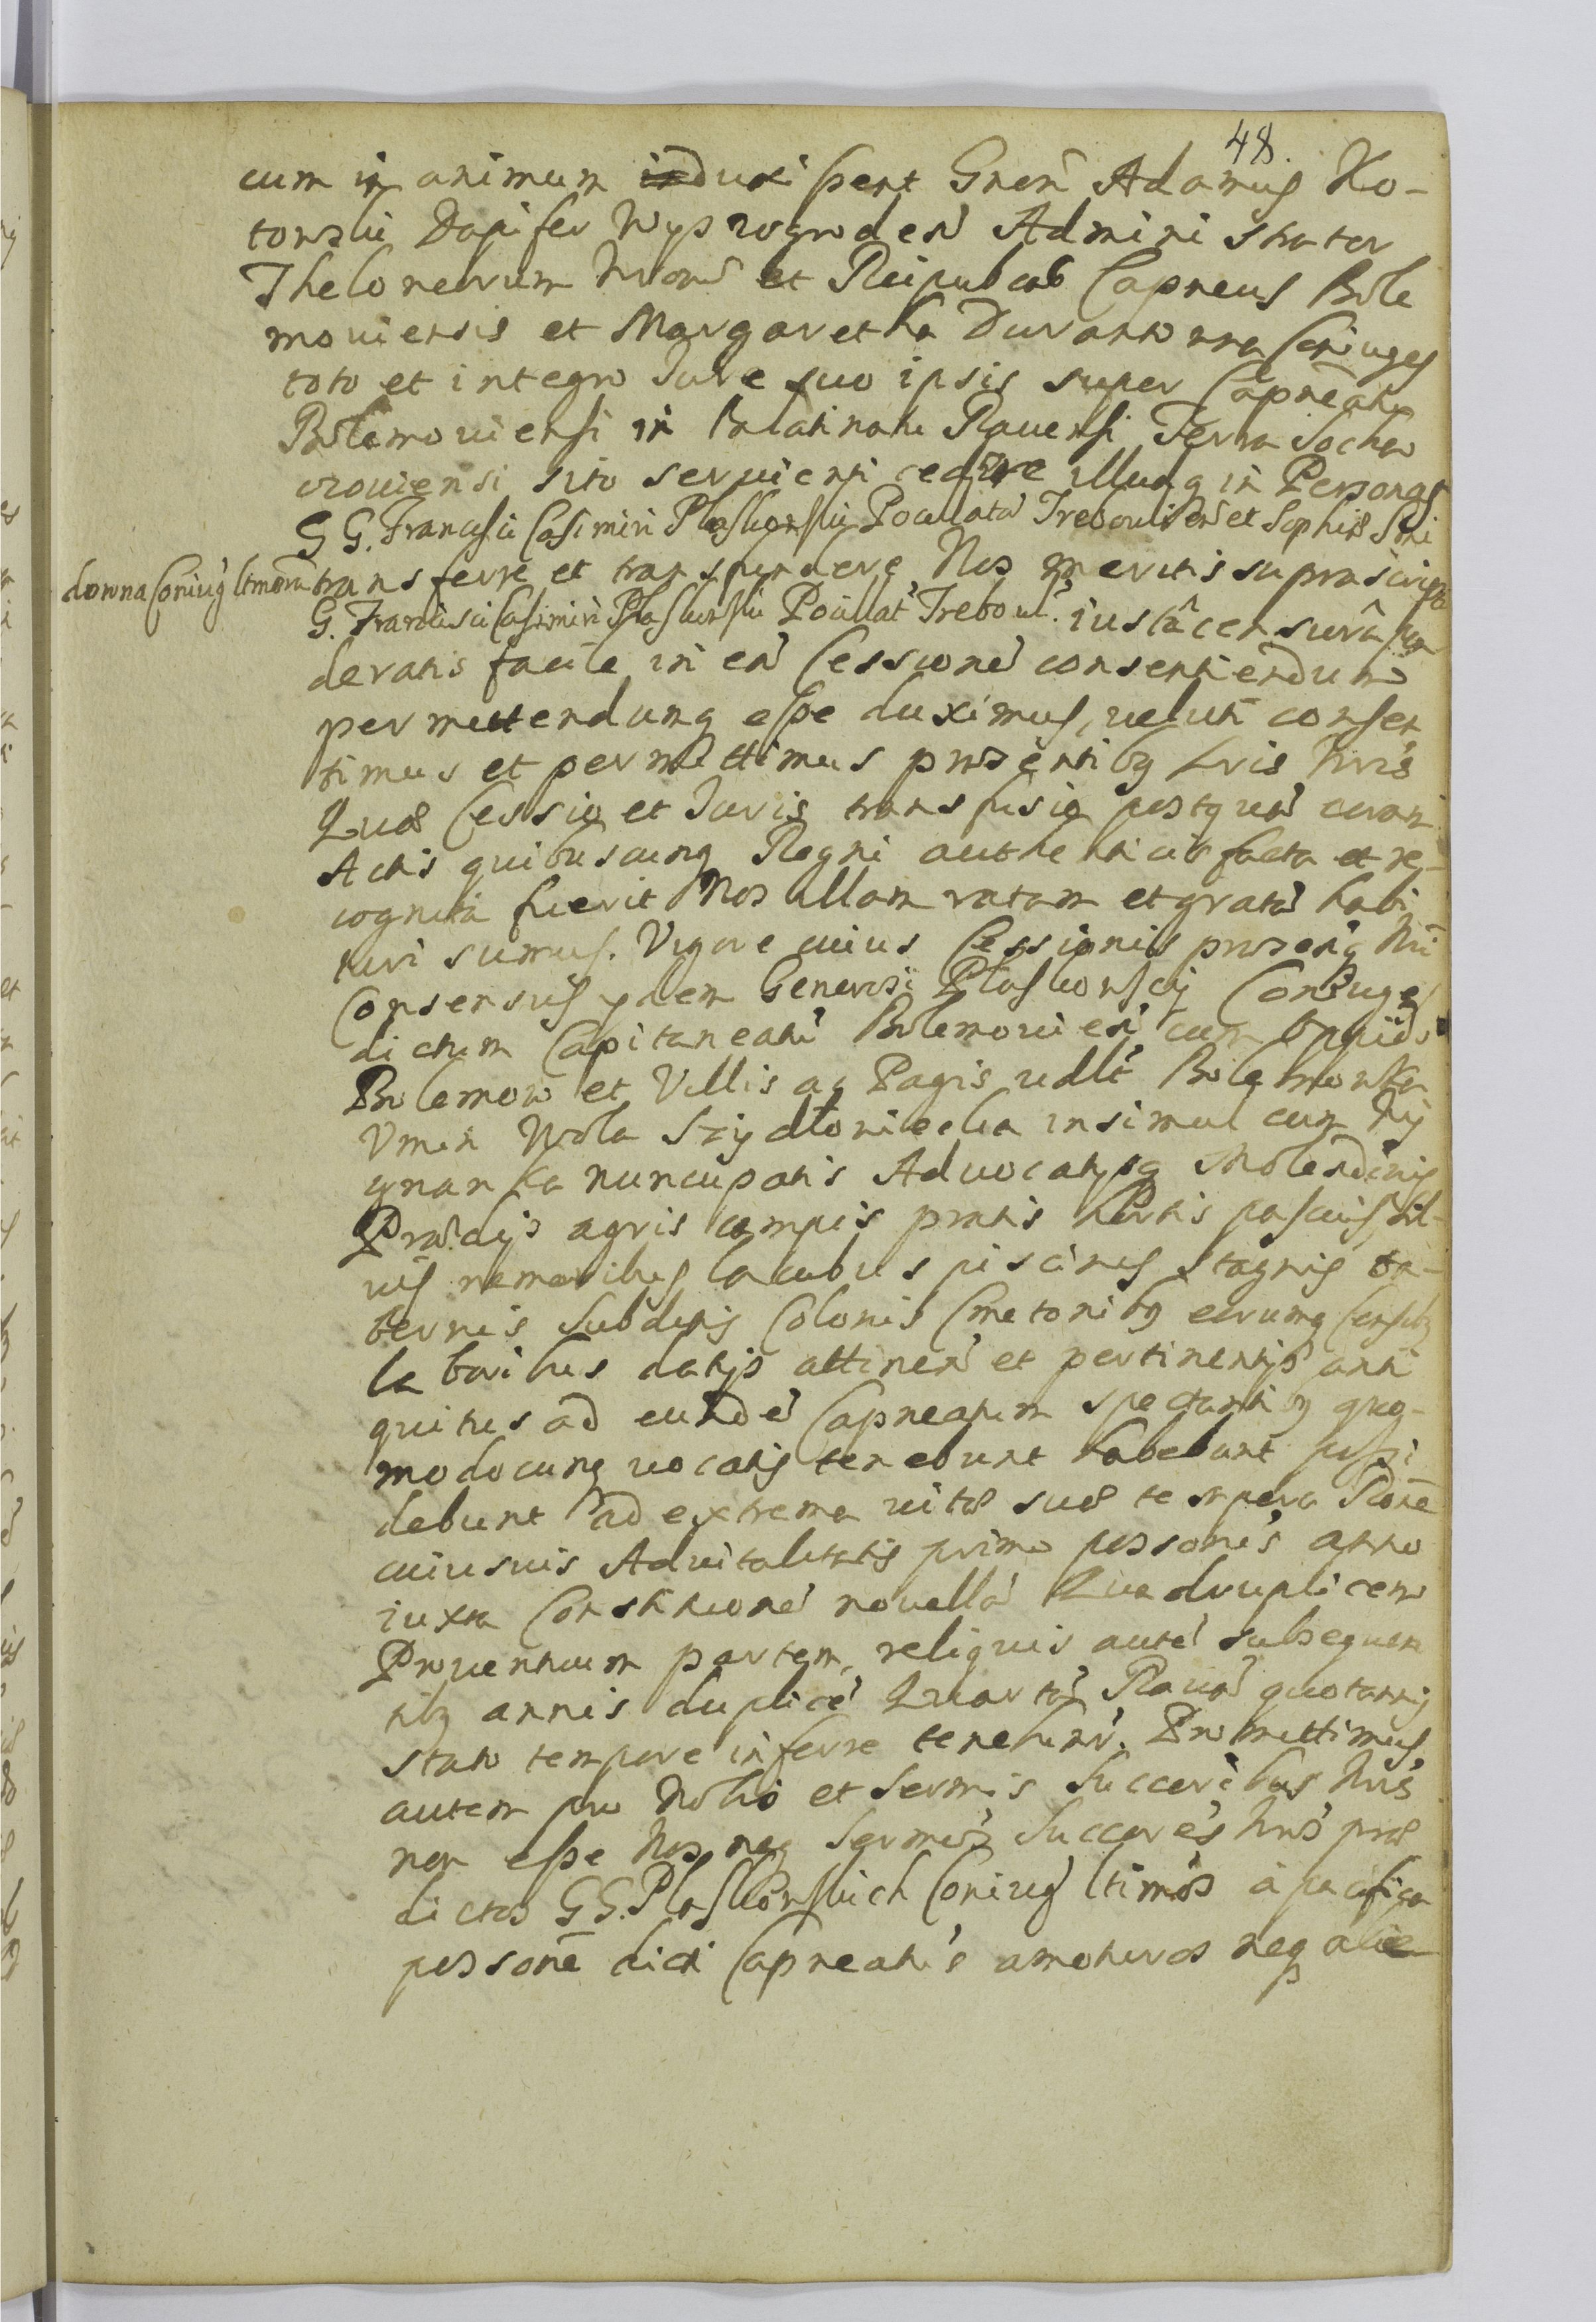 48.
cum in animum induxissent Gnen̄ Adamus Ko-
towski Dapifer Wyszogroden̄ Administrator
Theloneorum Nrorū et Reipubcæ Capneus Bole
moviensis et Margaretha Durantowna Coniuges
toto et integro Jure suo ipsis super Capneatu
Bolemoviensi in Palatinatu Ravensi Terra Socha
czoviensi sito servienti cedere illudq in Personas
G G. Francisci Casimiri Plaskowski Pocillato Trebovlien̄ et Sophiæ
downa Coniug ltmorū transferre et transfundere Nos meritis suprascripti
G. Francisci Casimiri Plaskowski Pocillat Trebovl. iustâ censurâ pon
deratis facile in eā Cessionē consentiendum
permittendumq esse duximus, uti consen
timus et permittimus præsentibq Lris Nris
Quæ Cessio et Juris transfusio postquā coram
Actis quibuscunq Regni authenticis facta et re-
cognita fuerit Nos illam ratam et gratā habi
turi sumus. Vigore cuius Cessionis præsenq Nri
Consensus ydem Generosi Plaskowscij Coniuges
dictum Capitaneatū Bolemovien̄ cum Oppido
Bolemow et Villis ac Pagis vdlt Bolemowska
Wola Szydłowiecka insimul cum
nuncupatis Advocatijsq Molendinis
Prædijs agris campis pratis hortis pascuis sil-
vis nemoribus lacubus piscinis stagnis ta-
bernis Subditis Colonis Cmetonibq eorumq Censibq
laboribus datijs attinen̄ et pertinentijs anti
quitus ad eundē Capneatum spectantibq quo-
modocunq vocatis tenebunt habebunt possi
debunt ad extrema vitæ suæ tempora
cuiusvis Advitalitatis primo possonis anno
iuxta Constitutionē novellā Quadruplicem
Proventuum partem, reliquis autē subsequen
tibq annis duplicē Quartā Ravā quotannis
stato tempore inferre tenebunr. Promittimus
autem pro Nobis et Sermis Succoribus Nris
non esse Nos neq Sermos Succores Nros præ
dictos G G. Plaskowskich Coniug ltimos à pacifica
possone dicti Capneatus amoturos neq alie